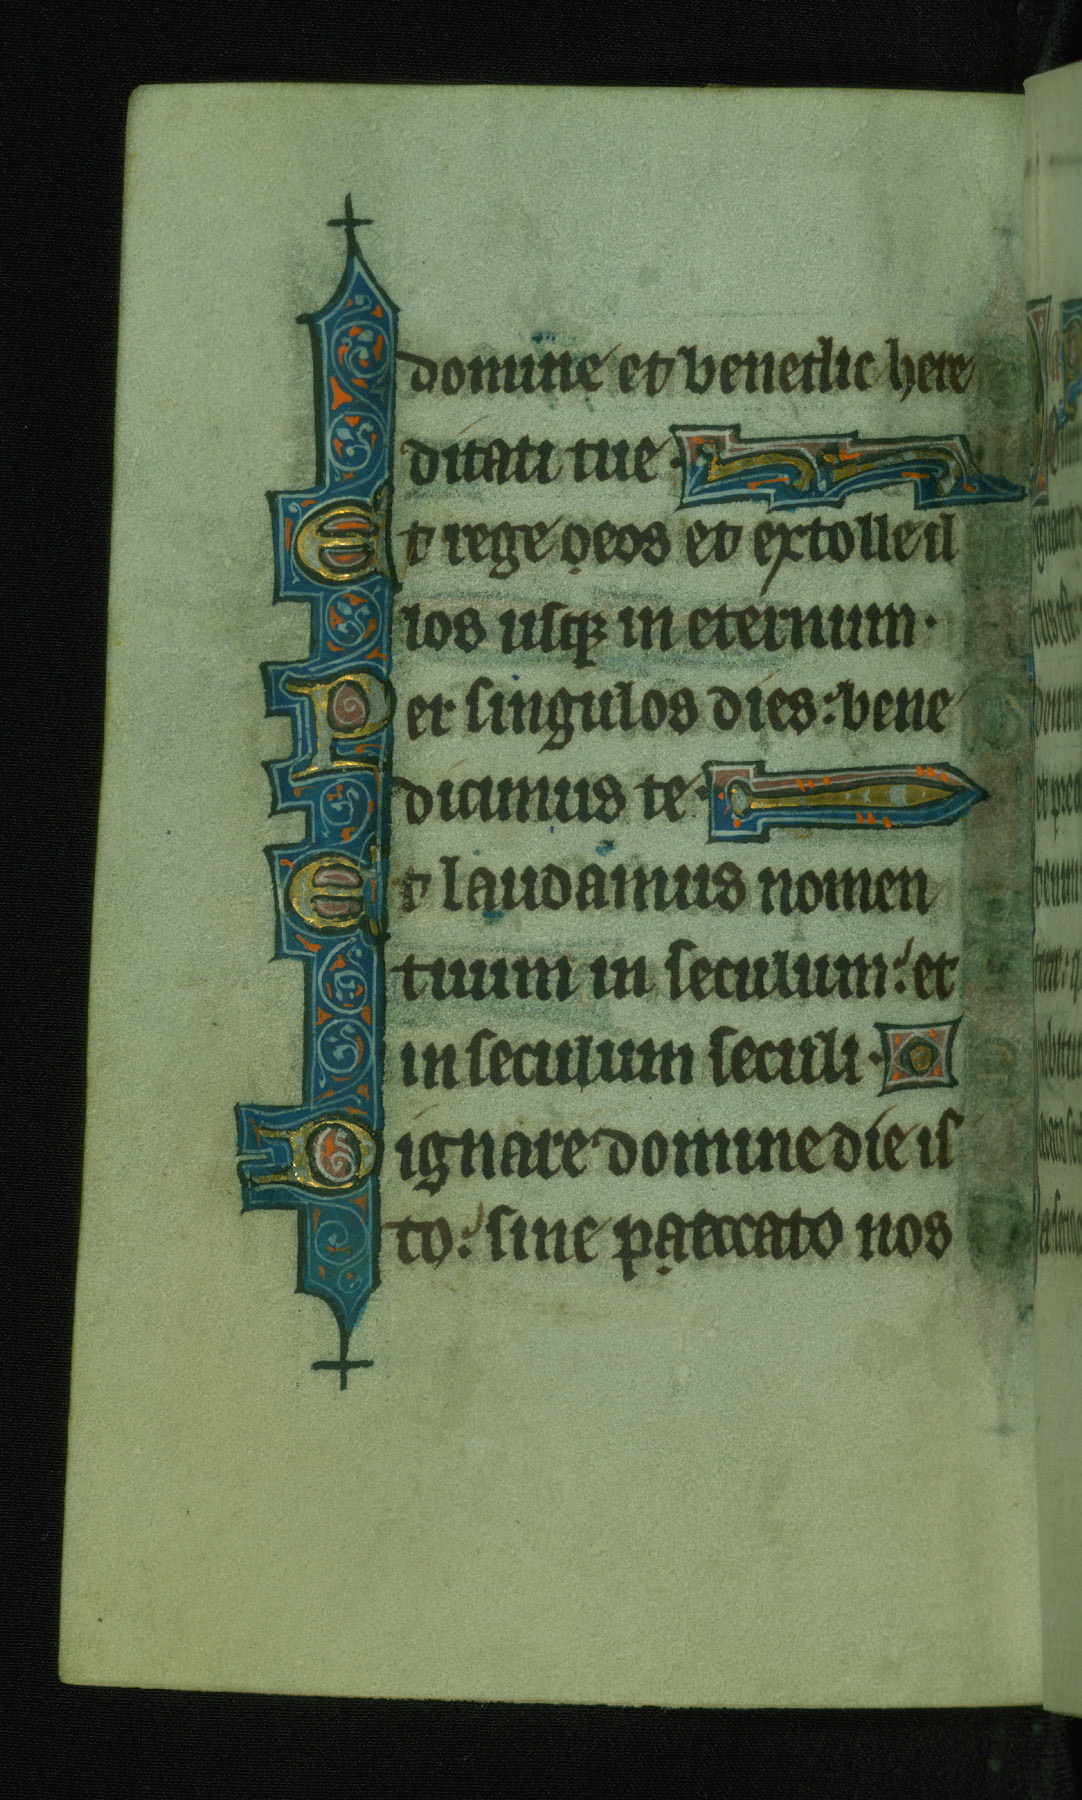 domine et benedic here
ditati tue·
Et rege oeos et extolle il
los usq; in eternum·
Per singulos dies: bene
dicimus te·
Et laudamus nomen
tuum in seculum: et
in seculum seculi·
Dignare domine die is
to: sine paeccato nos